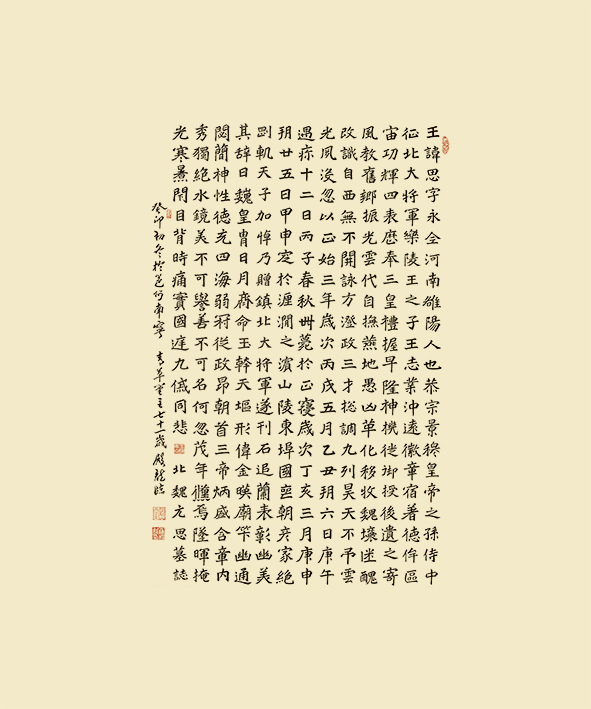 王諱思字永全河南雒陽人也恭宗景穆皇帝之孫侍中
征北大將軍樂陵王之子王志業沖遠徽章宿著德侔區
宙功輝四表歷奉三皇禮握早隆神機徙御授後遺之寄
風教舊鄉振光雲代自撫燕地愚凶革化移牧魏壤迷醜
改識自西無不開詠方澄政三才揔調九列昊天不予雲
光風沒忽以正始三年歲次丙戌五月乙丑玥六日庚午
遇疹十二日丙子春秋卌薨於正寢歲次丁亥三月庚申
玥廿五日甲申窆於瀍澗之濱山陵東埠國喪朝彥家絕
剴軌天子加悼乃贈鎮北大將軍遂刊石追蘭表彰幽美
其辭曰巍皇胄日月齊命玉幹天堀形偉金暎廟筞幽通
閎簡神性德充四海弱冠從政昂朝首三帝炳盛含章內
秀獨絕水鏡美不可譽善不可名何忽茂年儵焉墜暉掩
光寒景閇目背時痛實國遑九慽同悲 北魏元思墓誌
癸卯初冬於邕州南寧 青草堂主七十一歲 龍臨